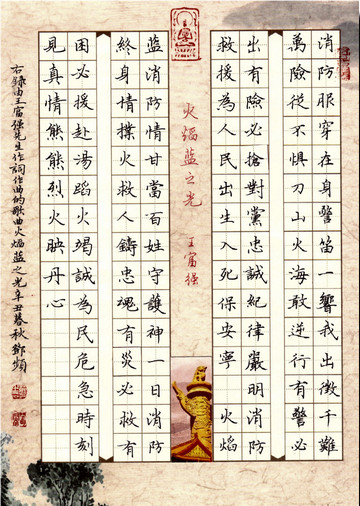 消防服穿在身警笛一響我出徵千難
萬險從不懼刀山火海敢逆行有警必
出有險必搶對黨忠誠紀律嚴明消防
救援為人民出生入死保安寧 火焰
火焰藍之光 王富强
藍消防情甘當百姓守護神一日消防
終身情撲火救人鑄忠魂有災必救有
困必援赴湯蹈火竭誠為民危急時刻
見真情熊熊烈火映丹心
右錄由王富强先生作詞作曲的歌曲火焰藍之光辛丑暮秋鄧頻